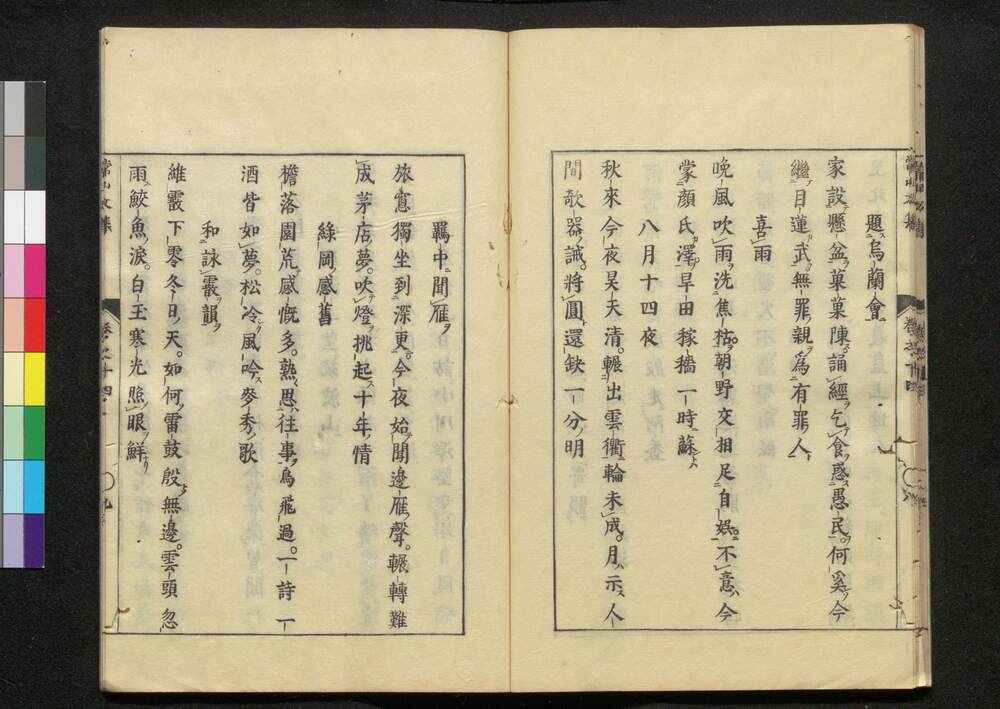 題烏蘭會
家設懸盆菓菓陳誦經乞食惑愚民何奚今
繼目蓮武無罪親為有罪人
喜雨
晩風吹雨洗焦枯朝野交相足自娯不意今
蒙顔氏澤早田稼穡一時蘇
八月十四夜
秋來今夜昊天清輾出雲衢輪未成月示人
間欹器誡將圓還缺一分明
羈中聞雁
旅窓獨坐到深更今夜始聞邊雁聲輾轉難
成茅店夢吹燈挑起十年情
綠岡感舊
檐落園荒感慨多熟思往事鳥飛過一詩一
酒皆如夢松冷風吟麥秀歌
和詠霰韻
維霰下零冬日天如何雷鼓殷無邊雲頭忽
雨鮫魚淚白玉寒光照眼鮮
常山文集
卷之十四
九